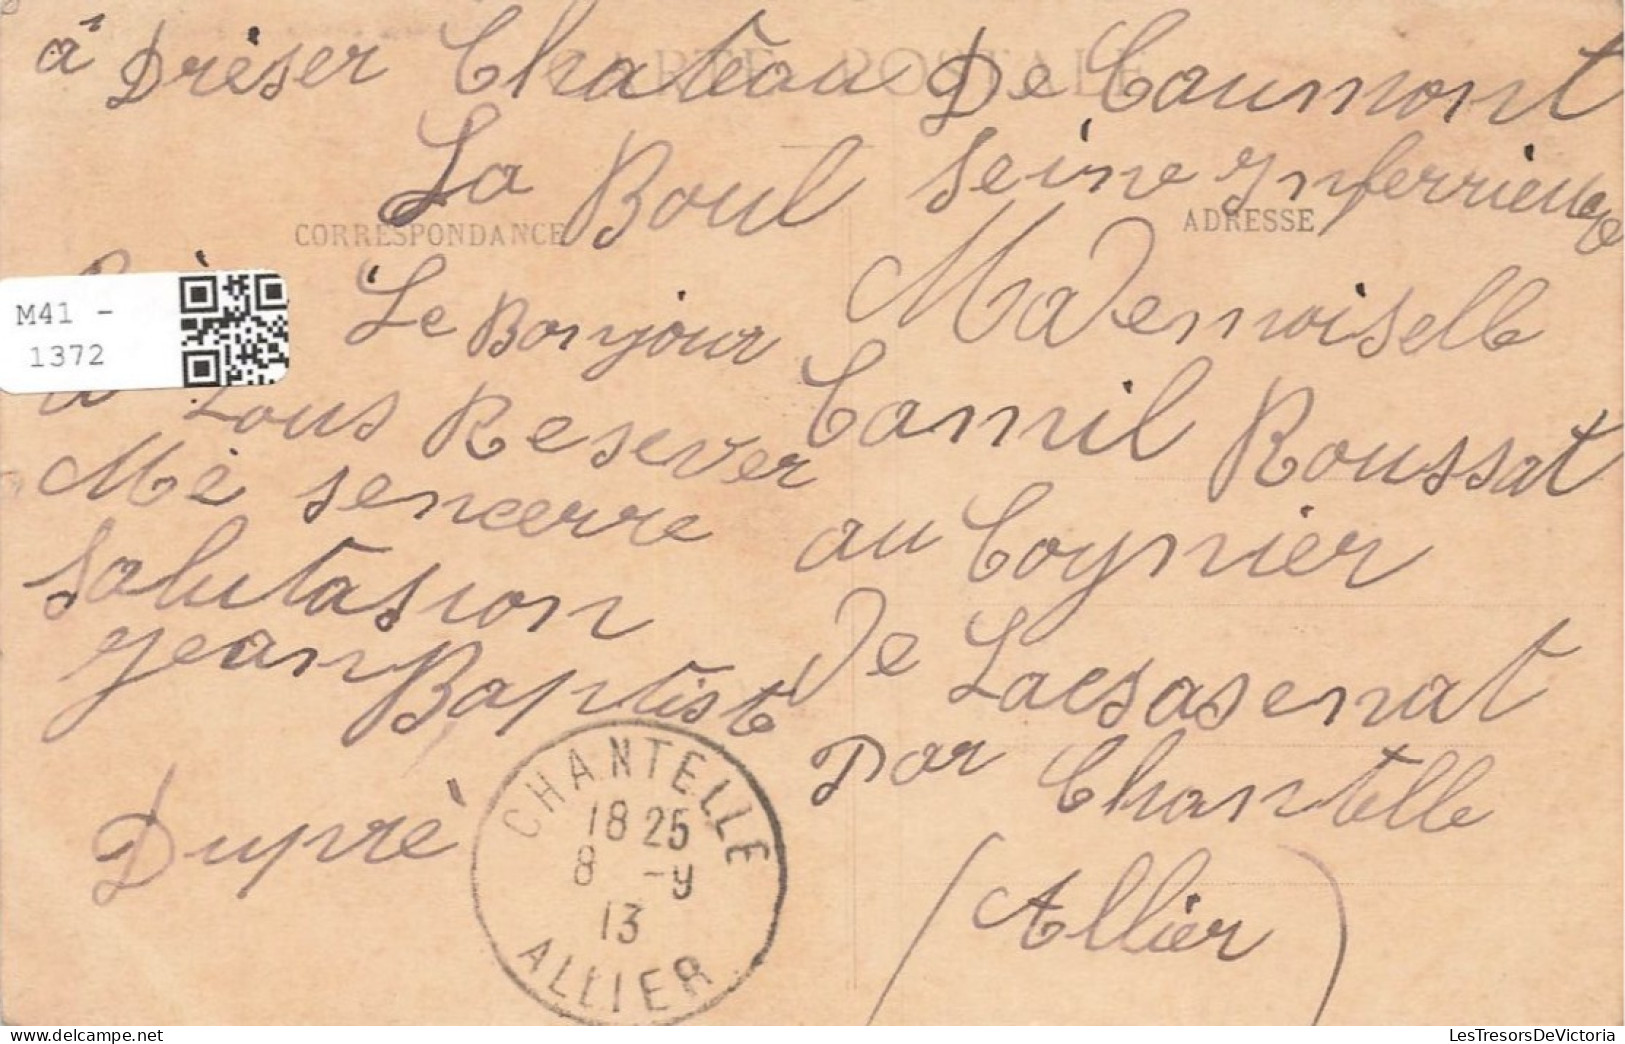 CARTE POSTALE
à Drèser Chateau De Caumont
La Boul seine Inferrieure
CORRESPONDANCE
Le Bonjour
a Tous Resever
Mè sencerre
Salutasion
Jean Baptiste
Dupré
ADRESSE
Mademoiselle
Camil Roussat
au Cognier
De Lacsasenat
par Chantelle
(Allier)
CHANTELLE
18 25
8 -9
13
ALLIER
M41 -
1372
LesTresorsDeVictoria